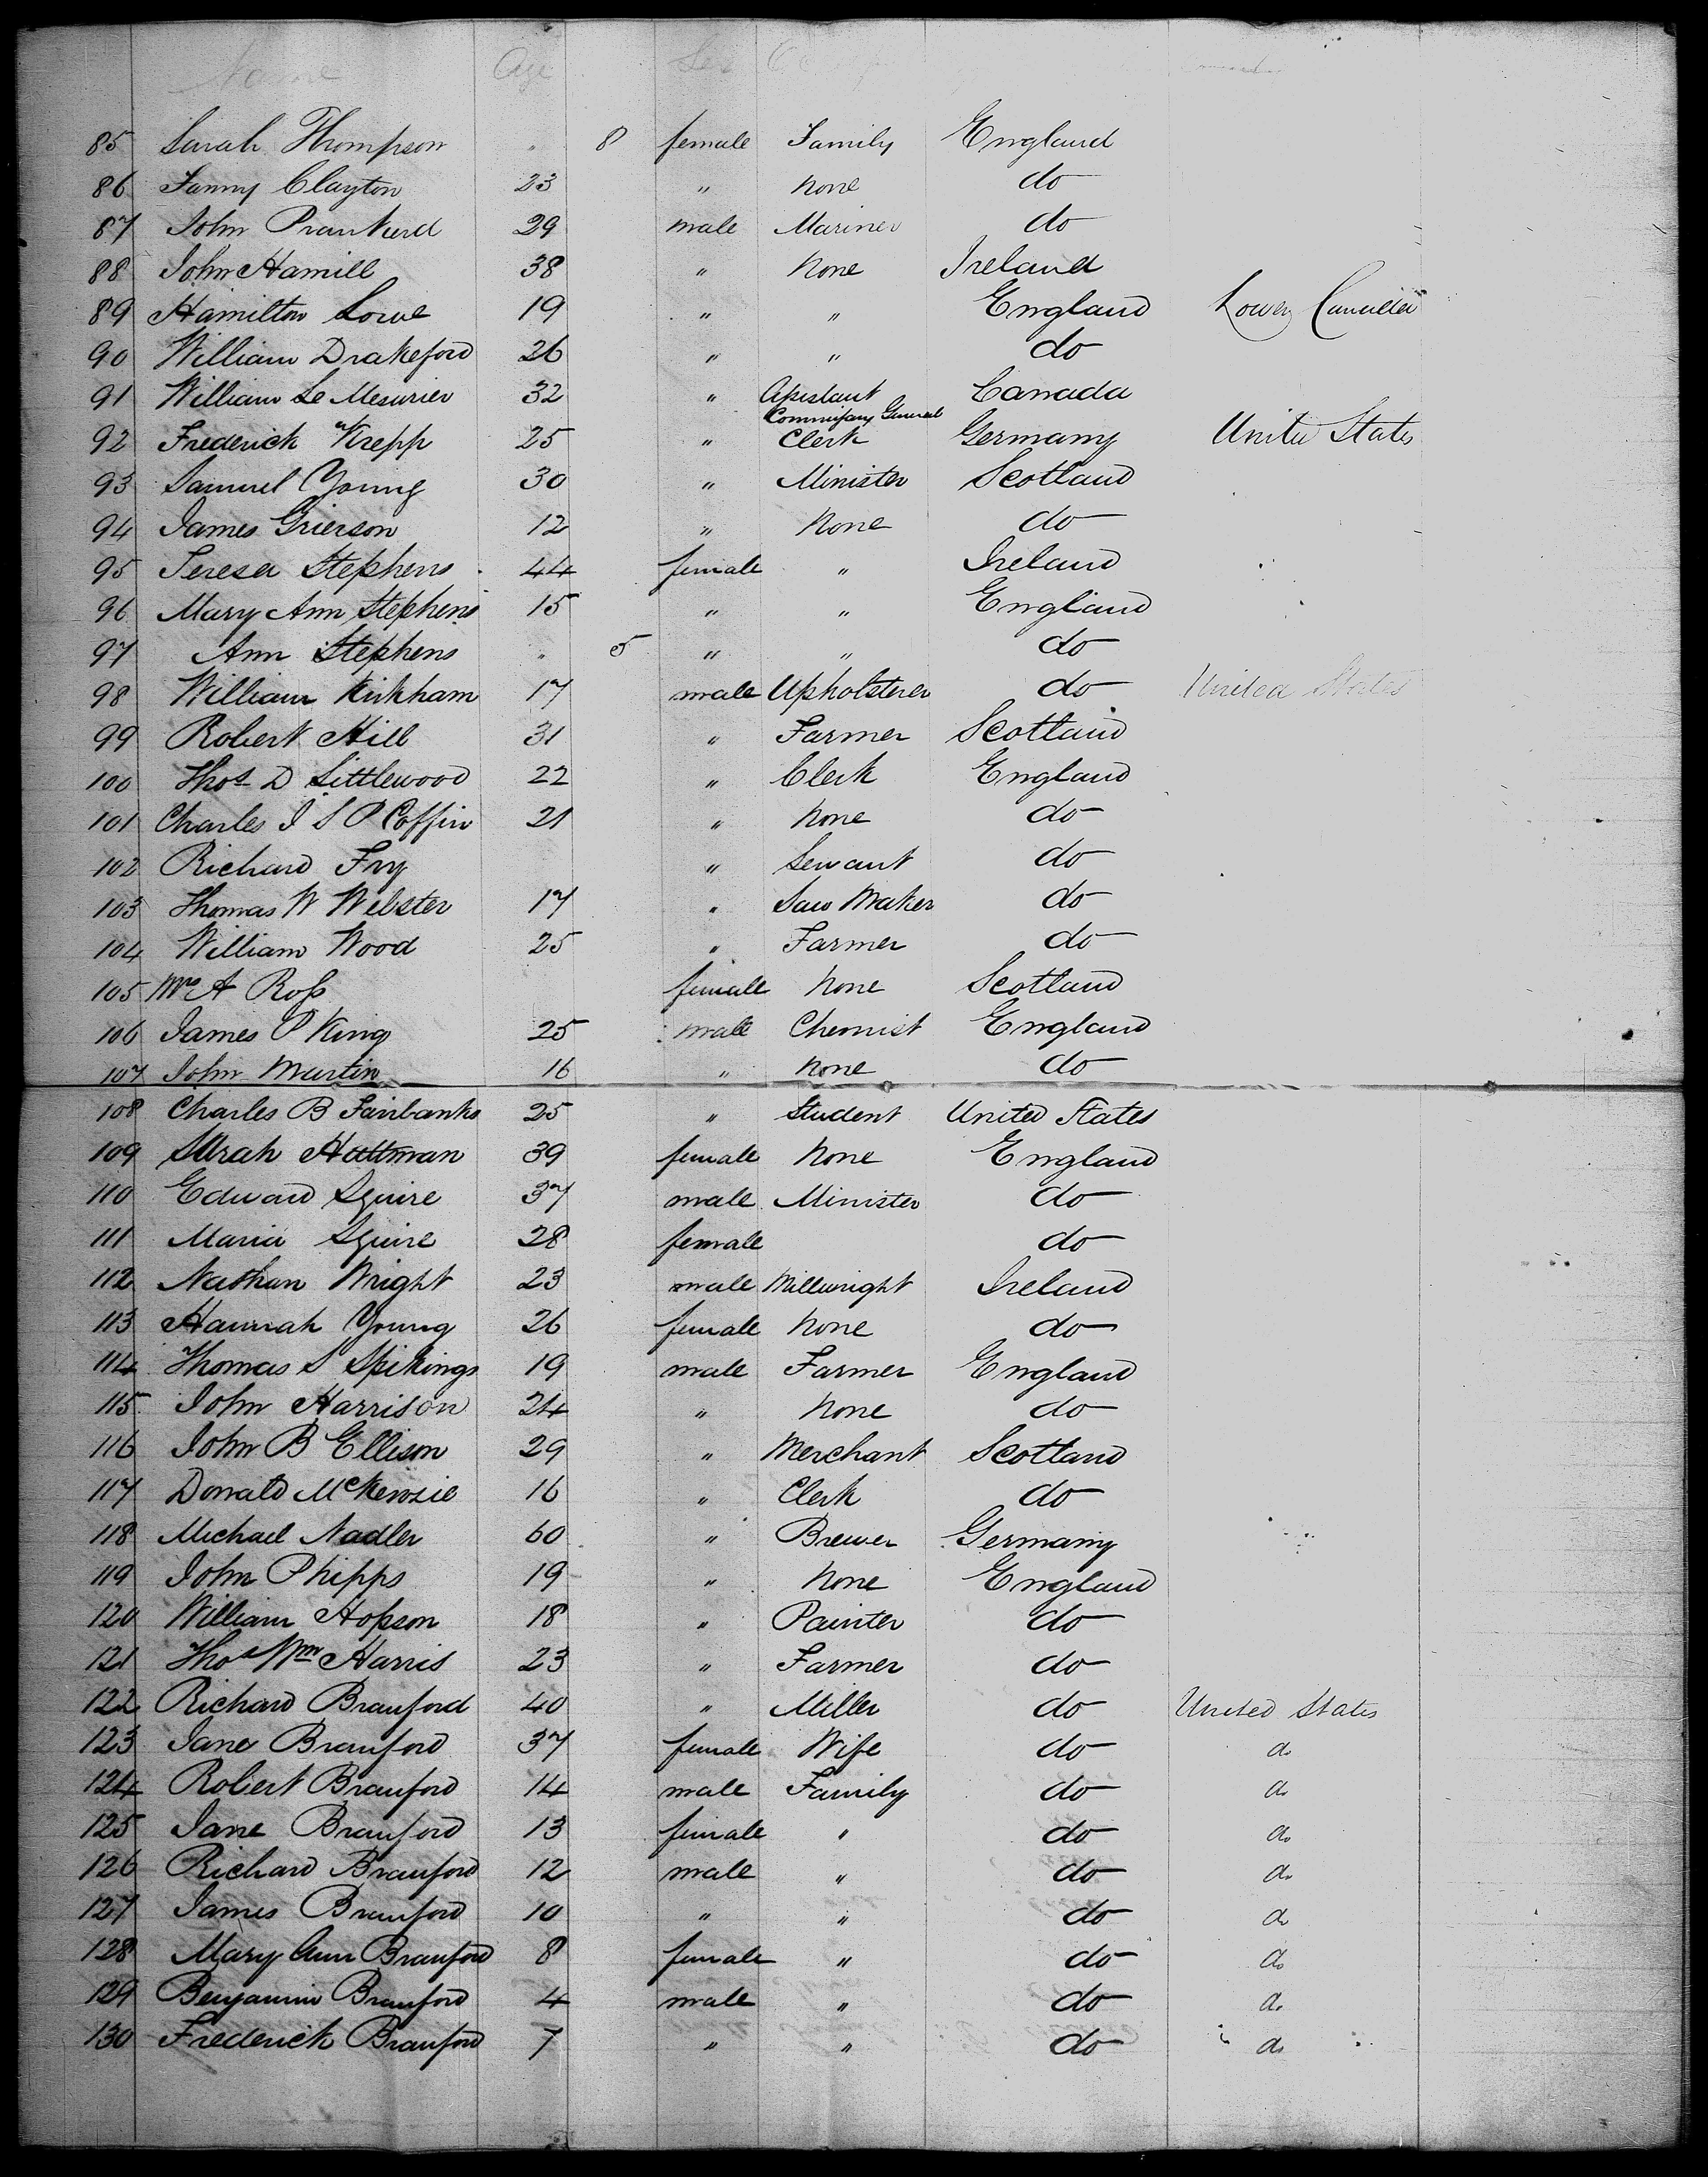 Name Age Sex
85 Sarah Thompson " 8 female Family England
86 Fanny Clayton 23 " None do
87 John Prankerd 29 male Mariner do
88 John Hamill 38 " None Ireland
89 Hamilton Lowe 19 " " England Lower Canada
90 William Drakeford 26 " " do
91 William Le Mesurier 32 " Assistant Commissary General Canada
92 Frederick Krepp 25 " Clerk Germany United States
93 Samuel Young 30 " Minister Scotland
94 James Grierson 12 " None do
95 Teresa Stephens 44 female " Ireland
96 Mary Ann Stephens 15 " " England
97 Ann Stephens " 5 " " do
98 William Kirkham 17 male Upholsterer do United States
99 Robert Hill 31 " Farmer Scotland
100 Thos D Littlewood 22 " Clerk England
101 Charles I S P Coffin 21 " None do
102 Richard Fry " Servant do
103 Thomas W Webster 17 " Saw Maker do
104 William Wood 25 " Farmer do
105 Mrs A Ross female None Scotland
106 James P King 25 male Chemist England
107 John Martin 16 " None do
108 Charles B Fairbanks 25 " Student United States
109 Sarah 39 female None England
110 Edward Squire 37 male Minister do
111 Maria Squire 28 female do
112 Nathan Wright 23 male Millwright Ireland
113 Hannah Young 26 female None do
114 Thomas S Spikings 19 male Farmer England
115 John Harrison 24 " None do
116 John B Ellison 29 " Merchant Scotland
117 Donald McKenzie 16 " Clerk do
118 Michael Nadler 60 " Brewer Germany
119 John Phipps 19 " None England
120 William Hopson 18 " Painter do
121 Thos Wm Harris 23 " Farmer do
122 Richard Branford 40 " Miller do United States
123 Jane Branford 37 female Wife do do
124 Robert Branford 14 male Family do do
125 Jane Branford 13 female " do do
126 Richard Branford 12 male " do do
127 James Branford 10 " " do do
128 Mary Ann Branford 8 female " do do
129 Benjamin Branford 4 male " do do
130 Frederick Branford 7 " " do do